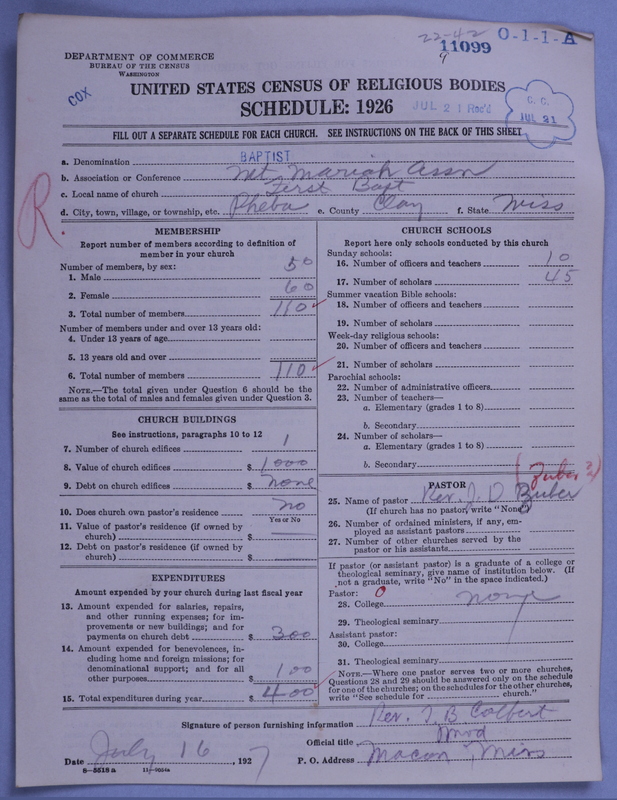 22-42
11099
O-1-1-A
DEPARTMENT OF COMMERCE
BUREAU OF THE CENSUS
WASHINGTON
COX
UNITED STATES CENSUS OF RELIGIOUS BODIES
SCHEDULE: 1926
JUL 21 Rec'd
C. C.
JUL 21
FILL OUT A SEPARATE SCHEDULE FOR EACH CHURCH. SEE INSTRUCTIONS ON THE BACK OF THIS SHEET
a. Denomination BAPTIST
b. Association or Conference Mt. Mariah Assn
c. Local name of church First Bapt
d. City, town, village, or township, etc. Pheba e. County Clay f. State Miss
R.
MEMBERSHIP
Report number of members according to definition of
member in your church
Number of members, by sex:
1. Male 50
2. Female 60
3. Total number of members 110
Number of members under and over 13 years old:
4. Under 13 years of age
5. 13 years old and over
6. Total number of members 110
NOTE.—The total given under Question 6 should be the
same as the total of males and females given under Question 3.
CHURCH BUILDINGS
See instructions, paragraphs 10 to 12
7. Number of church edifices 1
8. Value of church edifices $ 1000
9. Debt on church edifices $ none
10. Does church own pastor's residence? no
Yes or No
11. Value of pastor's residence (if owned by
church) $
12. Debt on pastor's residence (if owned by
church) $
EXPENDITURES
Amount expended by your church during last fiscal year
13. Amount expended for salaries, repairs,
and other running expenses; for im-
provements or new buildings; and for
payments on church debt $ 300
14. Amount expended for benevolences, in-
cluding home and foreign missions; for
denominational support; and for all
other purposes $ 100
15. Total expenditures during year $ 400
CHURCH SCHOOLS
Report here only schools conducted by this church
Sunday schools:
16. Number of officers and teachers 10
17. Number of scholars 45
Summer vacation Bible schools:
18. Number of officers and teachers
19. Number of scholars
Week-day religious schools:
20. Number of officers and teachers
21. Number of scholars
Parochial schools:
22. Number of administrative officers
23. Number of teachers—
a. Elementary (grades 1 to 8)
b. Secondary
24. Number of scholars—
a. Elementary (grades 1 to 8)
b. Secondary
(Zuber ?)
PASTOR
25. Name of pastor Rev. J. D. Zuber
(If church has no pastor, write "None")
26. Number of ordained ministers, if any, em-
ployed as assistant pastors
27. Number of other churches served by the
pastor or his assistants
If pastor (or assistant pastor) is a graduate of a college or
theological seminary, give name of institution below. (If
not a graduate, write "No" in the space indicated.)
Pastor: O
28. College none
29. Theological seminary
Assistant pastor:
30. College
31. Theological seminary
NOTE.—Where one pastor serves two or more churches,
Questions 28 and 29 should be answered only on the schedule
for one of the churches; on the schedules for the other churches,
write "See schedule for church."
Signature of person furnishing information Rev. J. B Colbert
Official title Mod
Date July 16, 1927 P. O. Address Macon, Miss
8—5518a